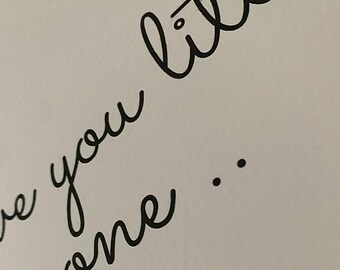 ve you litt
one ..